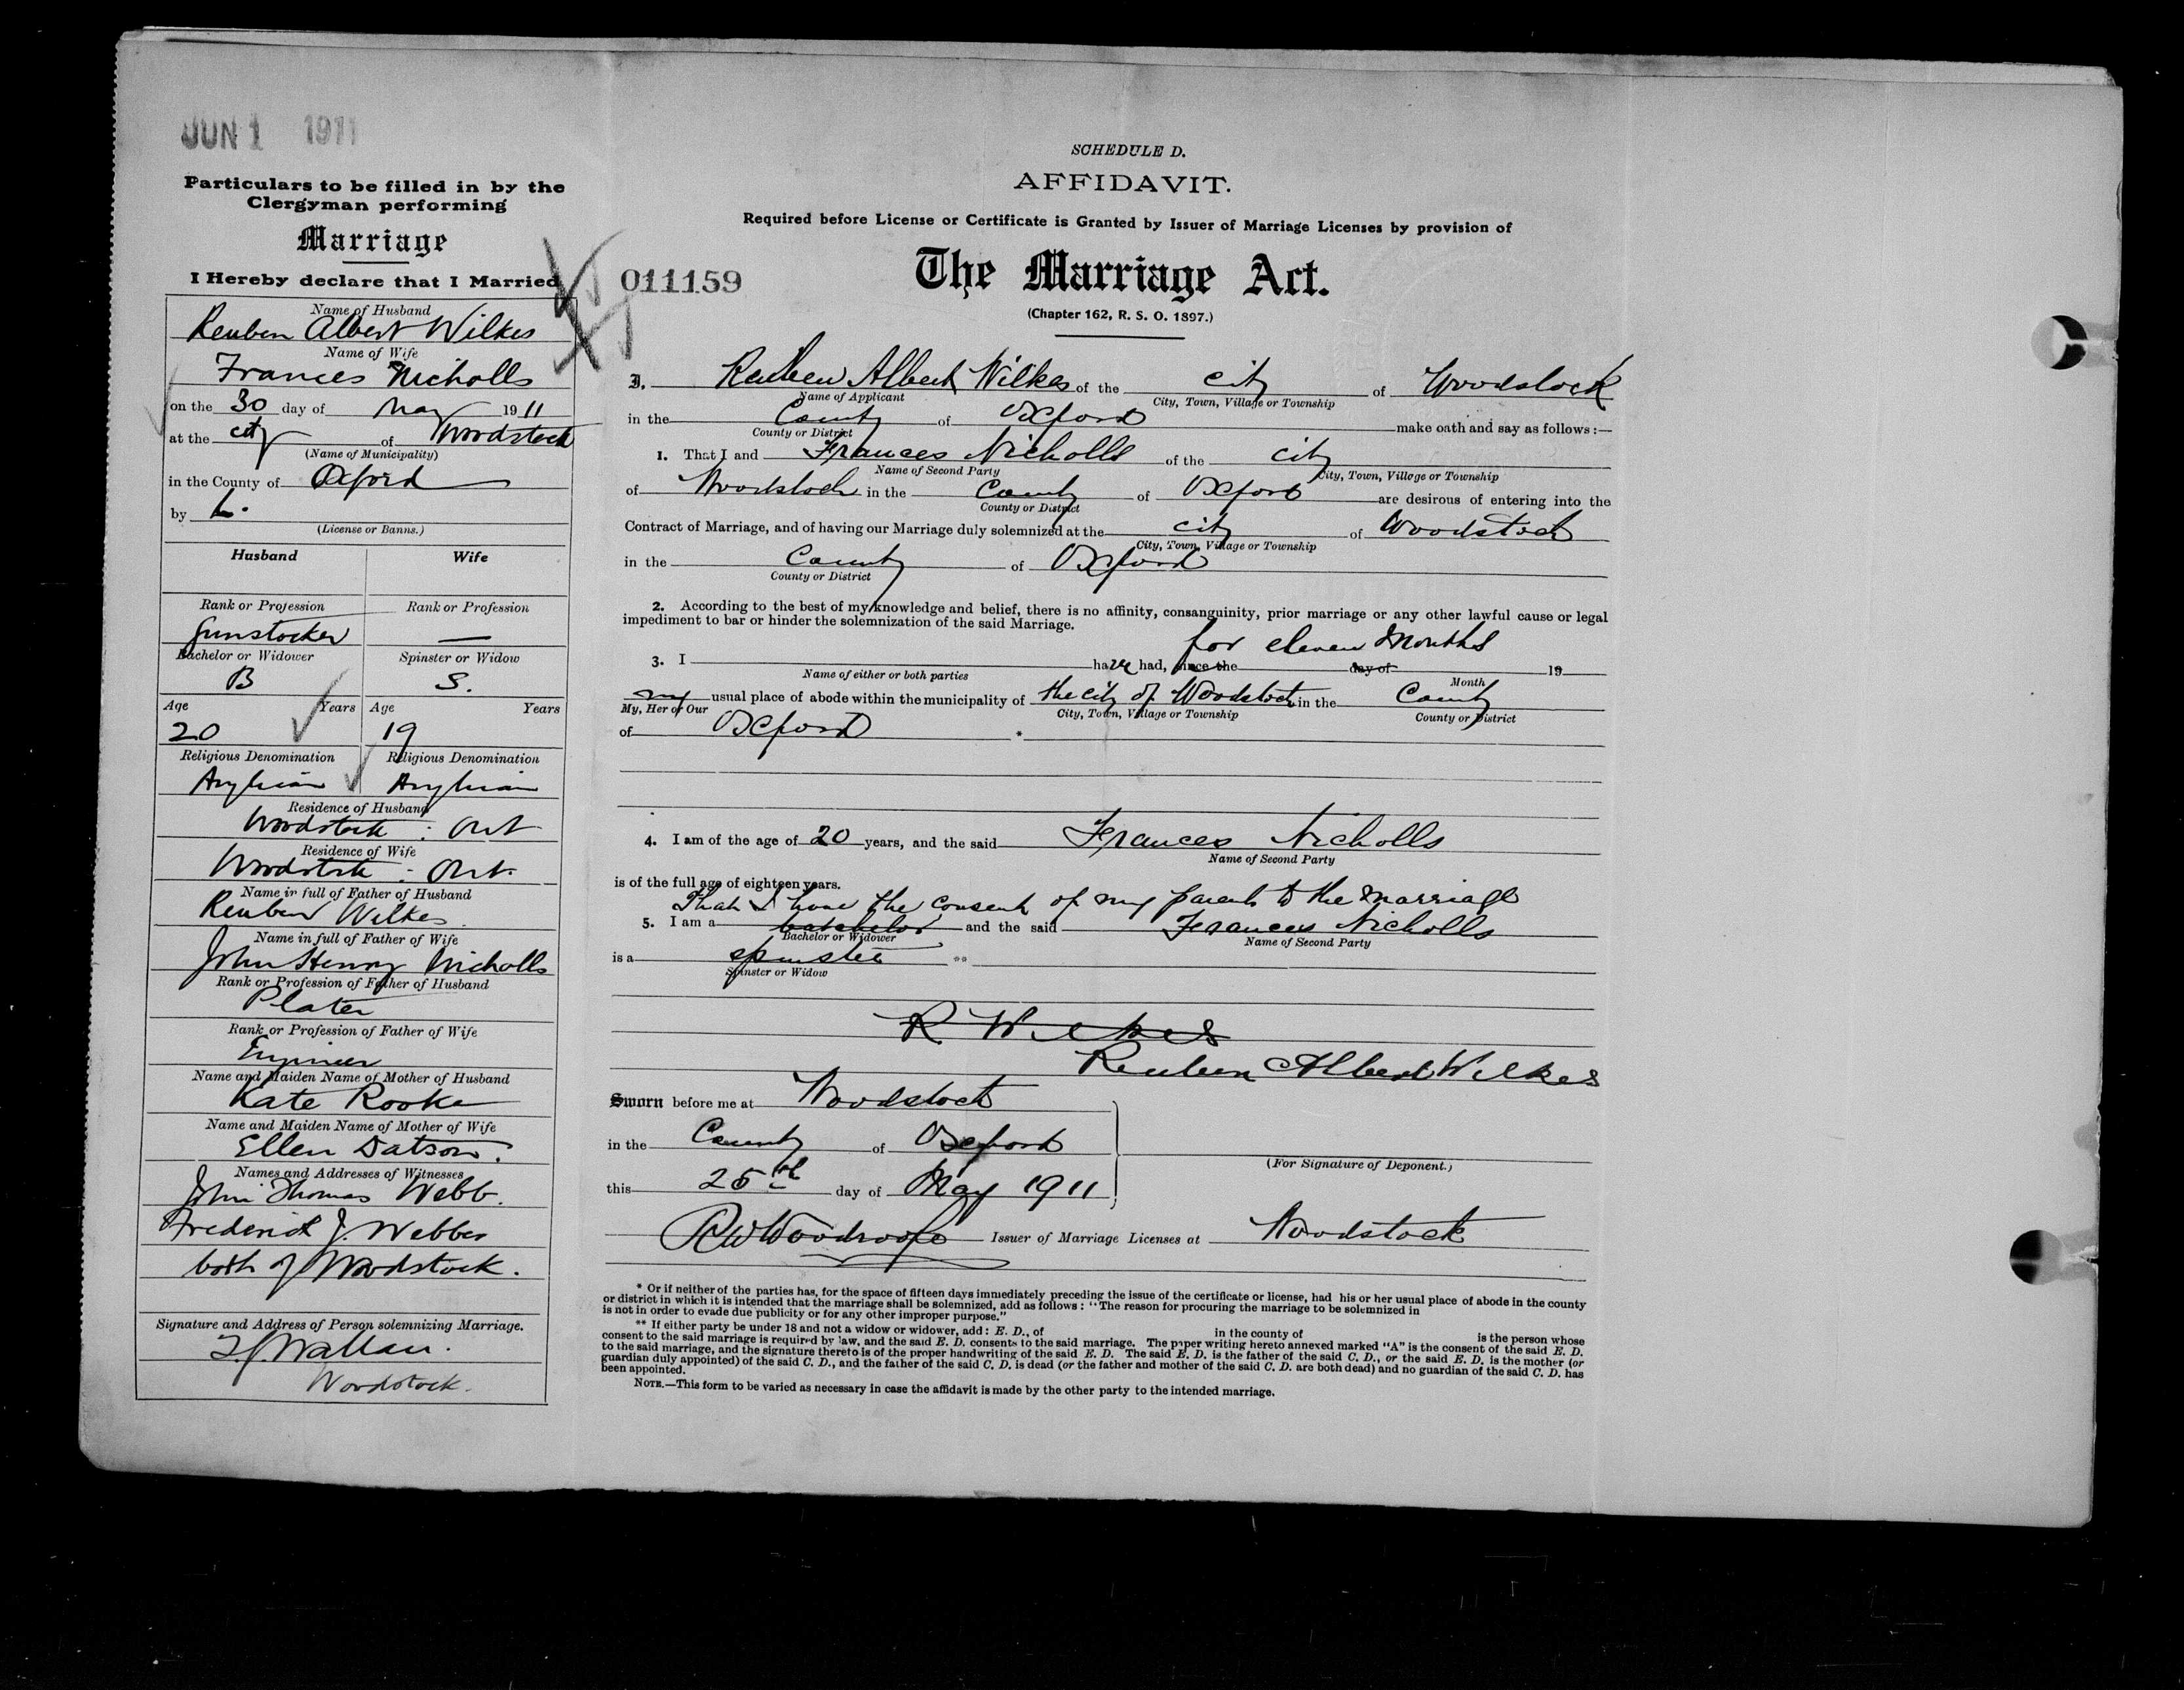 JUN 1 1911
Particulars to be filled in by the
Clergyman performing
Marriage
I Hereby declare that I Married
Name of Husband
Reuben Albert Wilkes
Name of Wife
Frances Nicholls
on the 30 day of May 1911
at the city of Woodstock
(Name of Municipality)
in the County of Oxford
by L.
(License or Banns.)
Husband Wife
Rank or Profession Rank or Profession
Gunstocker —
Bachelor or Widower Spinster or Widow
B S.
Age Years Age Years
20 19
Religious Denomination Religious Denomination
Anglican Anglican
Residence of Husband
Woodstock : Ont
Residence of Wife
Woodstock : Ont.
Name in full of Father of Husband
Reuben Wilkes
Name in full of Father of Wife
John Henry Nicholls
Rank or Profession of Father of Husband
Plater
Rank or Profession of Father of Wife
Engineer
Name and Maiden Name of Mother of Husband
Kate Rooke
Name and Maiden Name of Mother of Wife
Ellen Datson.
Names and Addresses of Witnesses
John Thomas Webb.
Frederick J. Webber
both of Woodstock.
Signature and Address of Person solemnizing Marriage.
Woodstock.
SCHEDULE D.
AFFIDAVIT.
Required before License or Certificate is Granted by Issuer of Marriage Licenses by provision of
011159 The Marriage Act.
(Chapter 162, R. S. O. 1897.)
I. Reuben Albert Wilkes of the city of Woodstock
Name of Applicant City, Town, Village or Township
in the County of Oxford make oath and say as follows :—
County or District
1. That I and Frances Nicholls of the city
Name of Second Party City, Town, Village or Township
of Woodstock in the County of Oxford are desirous of entering into the
County or District
Contract of Marriage, and of having our Marriage duly solemnized at the city of Woodstock
City, Town, Village or Township
in the County of Oxford
County or District
2. According to the best of my knowledge and belief, there is no affinity, consanguinity, prior marriage or any other lawful cause or legal
impediment to bar or hinder the solemnization of the said Marriage.
for eleven months
3. I have had, since the day of 19
Name of either or both parties Month
my usual place of abode within the municipality of the city of Woodstock in the County
My, Her or Our City, Town, Village or Township County or District
of Oxford *
4. I am of the age of 20 years, and the said Frances Nicholls
Name of Second Party
is of the full age of eighteen years.
That I have the consent of my parents to the marriage
5. I am a batchelor and the said Frances Nicholls
Bachelor or Widower Name of Second Party
is a spinster **
Spinster or Widow
R Wilkes
Reuben Albert Wilkes
Sworn before me at Woodstock
in the County of Oxford
(For Signature of Deponent.)
this 25th day of May 1911
R W Woodroofe Issuer of Marriage Licenses at Woodstock
* Or if neither of the parties has, for the space of fifteen days immediately preceding the issue of the certificate or license, had his or her usual place of abode in the county
or district in which it is intended that the marriage shall be solemnized, add as follows : "The reason for procuring the marriage to be solemnized in
is not in order to evade due publicity or for any other improper purpose."
** If either party be under 18 and not a widow or widower, add : E. D., of in the county of is the person whose
consent to the said marriage is required by law, and the said E. D. consents to the said marriage. The paper writing hereto annexed marked "A" is the consent of the said E. D.
to the said marriage, and the signature thereto is of the proper handwriting of the said E. D. The said E. D. is the father of the said C. D., or the said E. D. is the mother (or
guardian duly appointed) of the said C. D., and the father of the said C. D. is dead (or the father and mother of the said C. D. are both dead) and no guardian of the said C. D. has
been appointed.
NOTE.—This form to be varied as necessary in case the affidavit is made by the other party to the intended marriage.